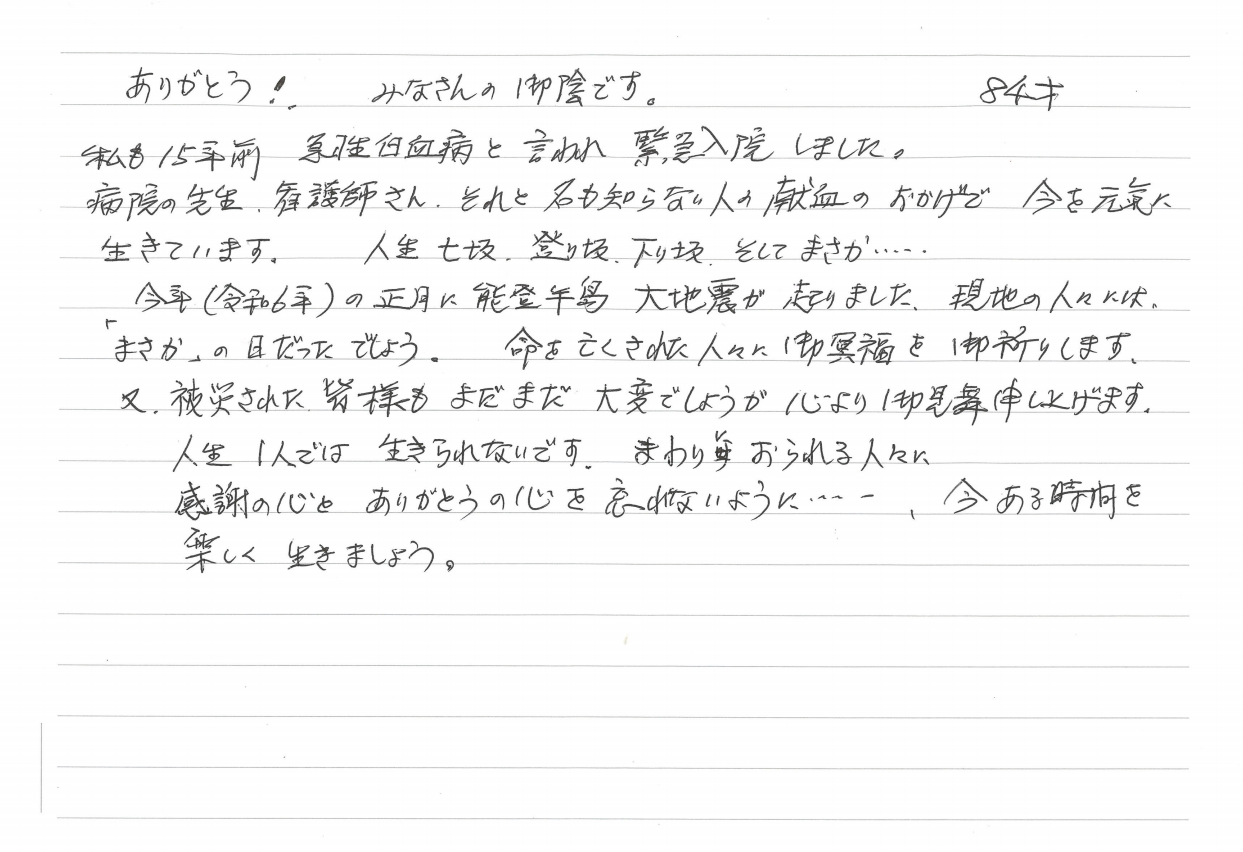 ありがとう！ みなさんの御陰です。 84才
私も15年前 急性白血病と言われ 緊急入院しました。
病院の先生、看護師さん、それと名も知らない人の献血のおかげで 今を元気に
生きています。 人生七坂、登り坂、下り坂、そしてまさか……
今年(令和6年)の正月に能登半島 大地震が起りました、現地の人々には、
「まさか」の目だったでしょう。 命を亡くされた人々に御冥福を御祈りします、
又、被災された皆様もまだまだ大変でしょうが心より御見舞申し上げます。
人生1人では生きられないです。まわりにおられる人々に
感謝の心とありがとうの心を忘れないように……、今ある時間を
楽しく生きましょう。